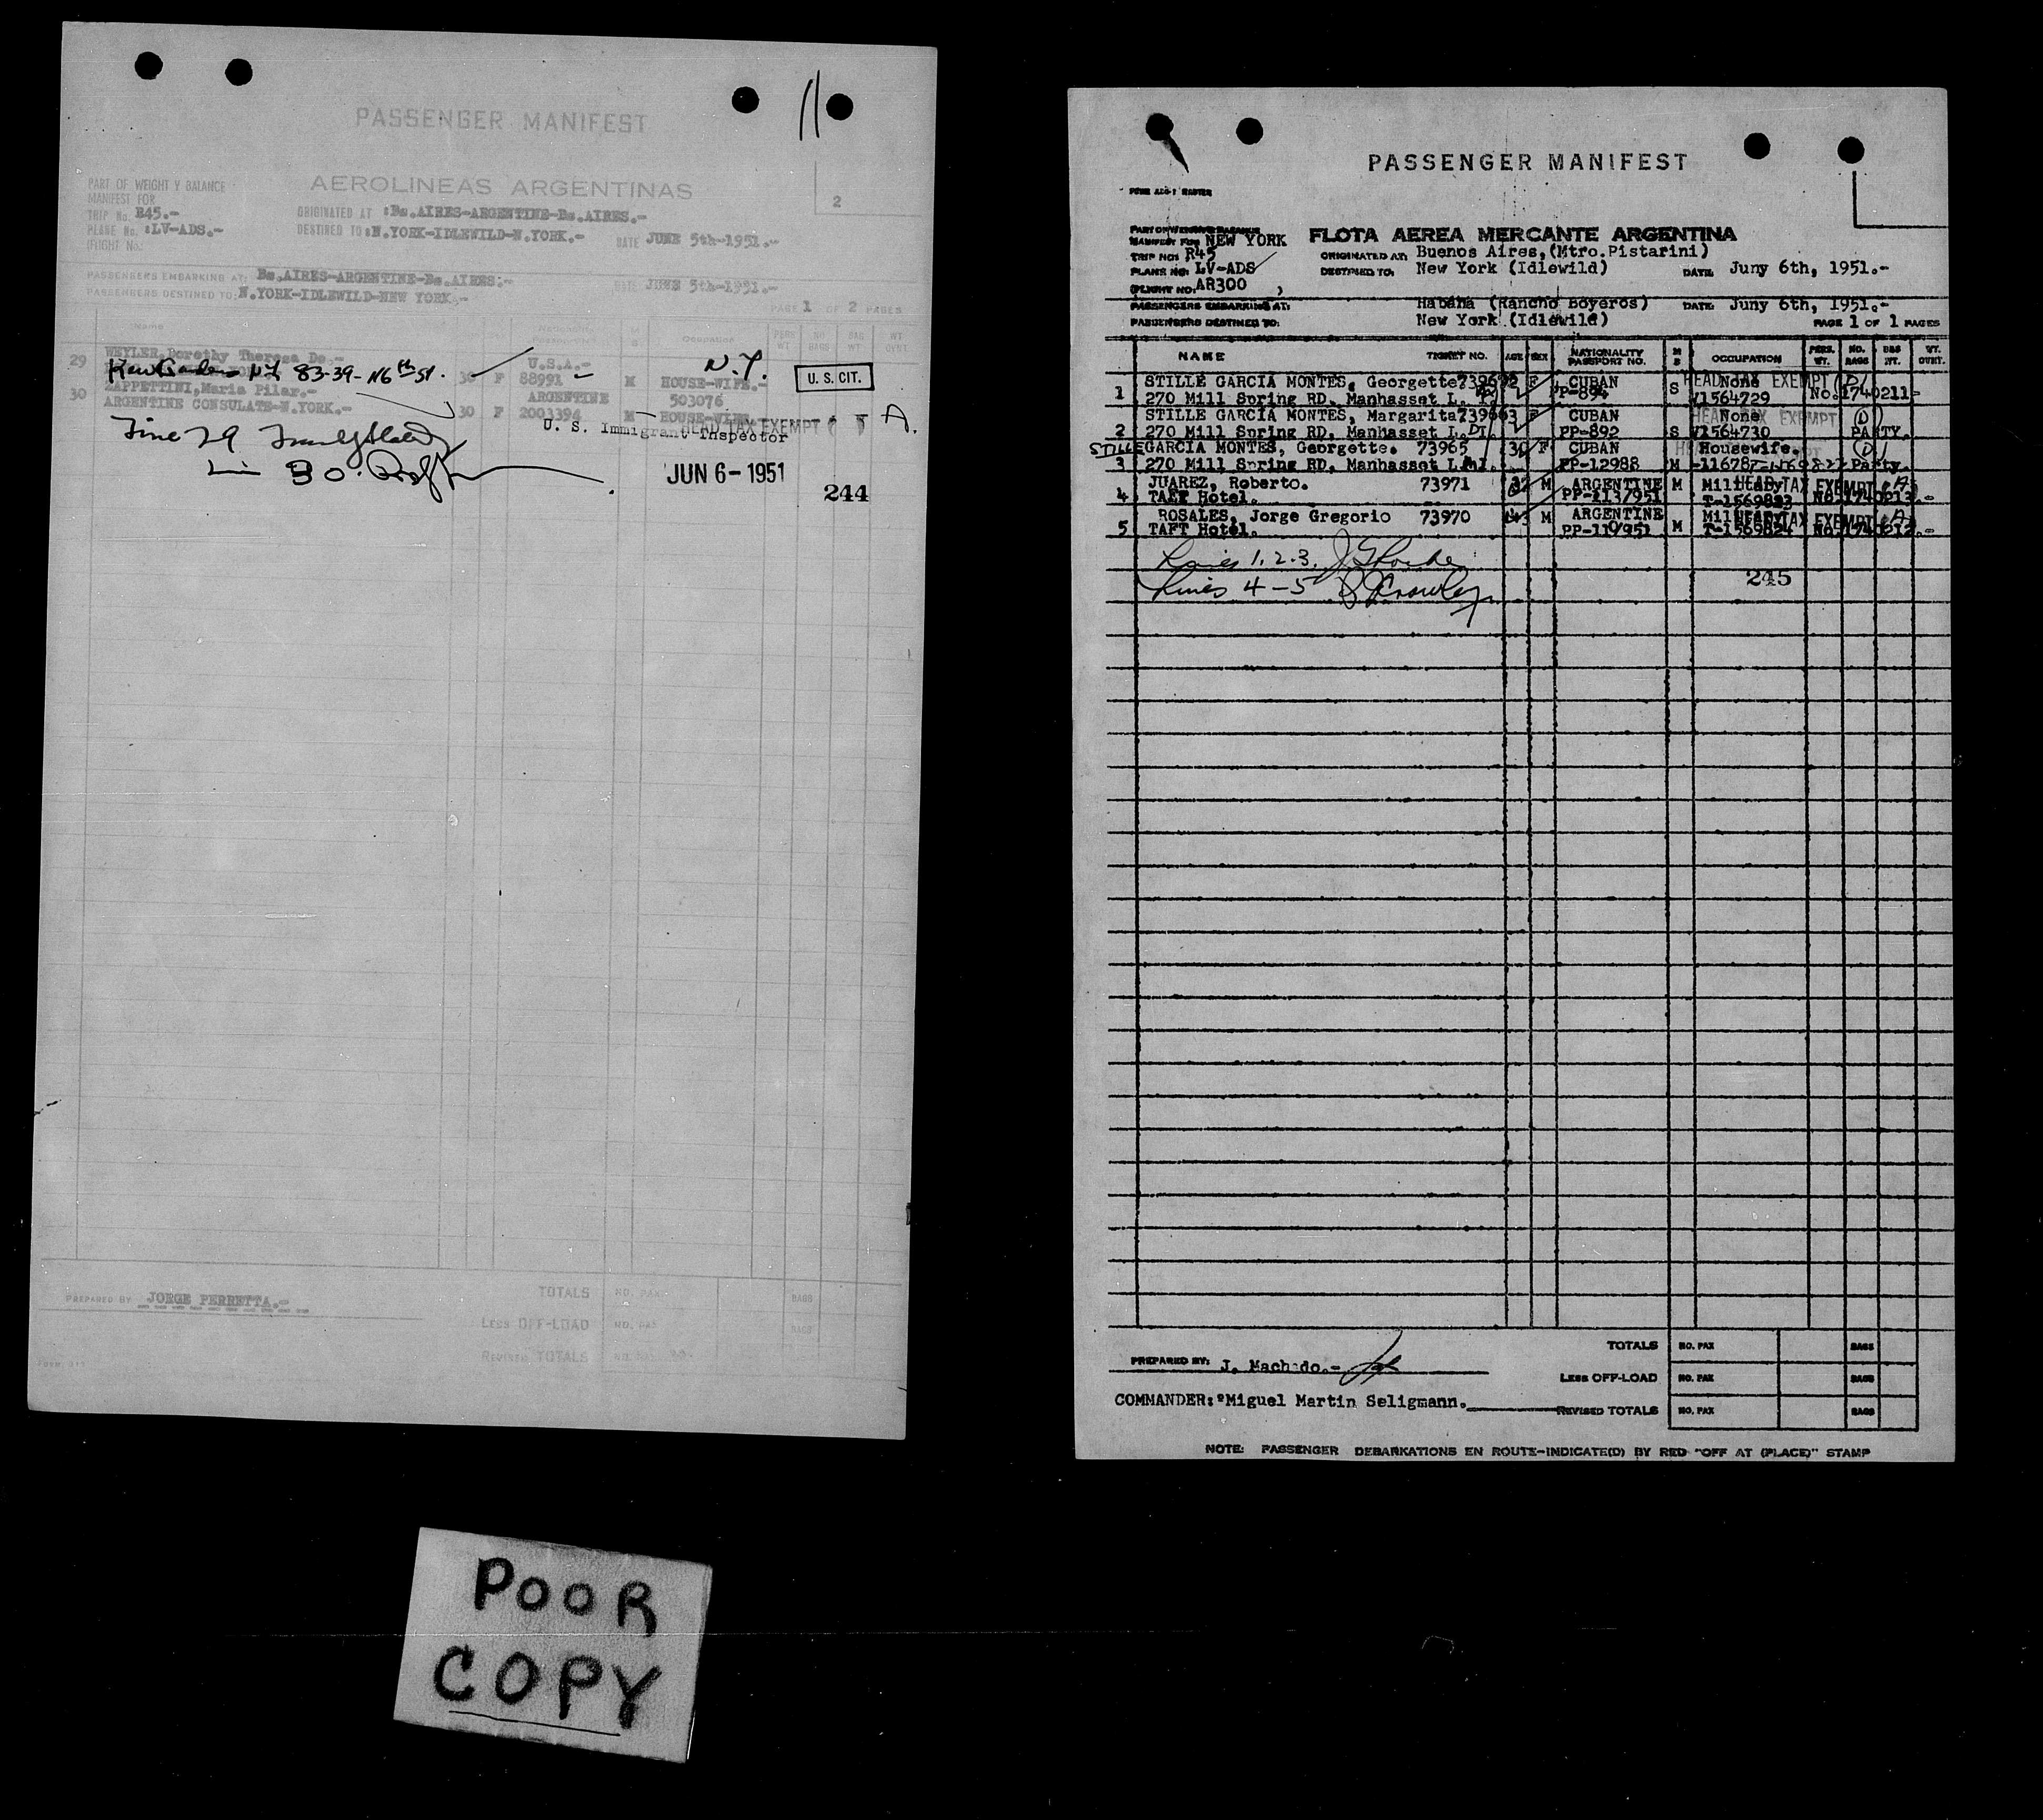 PASSENGER MANIFEST
AEROLINEAS ARGENTINAS
2
PART OF WEIGHT Y BALANCE
MANIFEST FOR
TRIP No. R45.-
PLANE No. :LV-ADS.-
(FLIGHT No.
ORIGINATED AT :Bs.AIRES-ARGENTINE-Bs.AIRES.-
DESTINED TO :N.YORK-IDLEWILD-N.YORK.- DATE JUNE 5th-1951.-
PASSENGERS EMBARKING AT: Bs.AIRES-ARGENTINE-Bs.AIRES:- DATE JUNE 5th-1951.-
PASSENGERS DESTINED TO: N.YORK-IDLEWILD-NEW YORK.-
PAGE 1 OF 2 PAGES
Name Occupation PERS WT NO BAGS BAG WT WT OVNT
29 WEYLER,Dorothy Theresa De.- U.S.A.- N.Y.
Kew Gardens N.Y. 83-39-116th St. 30 F 88991 M HOUSE-WIFE.- U. S. CIT.
30 ZAPPETTINI,Maria Pilar.- ARGENTINE 503076
ARGENTINE CONSULATE-N.YORK.- 30 F 2003394 M HOUSE-WIFE HEAD TAX EXEMPT A.
U. S. Immigrant Inspector
Line 29
30.
JUN 6-1951
244
PREPARED BY JORGE PERRETTA.-
TOTALS NO. PAX BAGS
LESS OFF-LOAD NO. PAX BAGS
REVISED TOTALS NO. PAX
PASSENGER MANIFEST
PART OF WEIGHT BALANCE
MANIFEST FOR NEW YORK
TRIP NO: R45
PLANE NO: LV-ADS
(FLIGHT NO. AR300 )
FLOTA AEREA MERCANTE ARGENTINA
ORIGINATED AT: Buenos Aires,(Mtro.Pistarini)
DESTINED TO: New York (Idlewild) DATE Juny 6th, 1951.-
PASSENGERS EMBARKING AT: Habana (Rancho Boyeros) DATE Juny 6th, 1951.-
PASSENGERS DESTINED TO: New York (Idlewild)
PAGE 1 OF 1 PAGES
NAME TICKET NO. AGE SEX NATIONALITY PASSPORT NO. M S OCCUPATION PERS. WT. NO. BAGS BAG WT. WT. OVNT.
STILLE GARCIA MONTES, Georgette F CUBAN None HEAD TAX EXEMPT (D)
1 270 Mill Spring RD, Manhasset L. I. PP-894 S V1564729 No.1740211-
STILLE GARCIA MONTES, Margarita 73963 F CUBAN None HEAD TAX EXEMPT (D)
2 270 Mill Spring RD, Manhasset L. I. PP-892 S V1564730 PARTY.
STILLE GARCIA MONTES, Georgette. 73965 30 F CUBAN Housewife.
3 270 Mill Spring RD, Manhasset L. I. PP-12988 M Party
JUAREZ, Roberto. 73971 M ARGENTINE M Military HEAD TAX EXEMPT (A)
4 TAFT Hotel. PP-1137951 T-1569823 No.1740213.-
ROSALES, Jorge Gregorio 73970 M ARGENTINE Military HEAD TAX EXEMPT (A)
5 TAFT Hotel. PP-110/951 M T-1569824 No.1740212.-
Lines 1, 2, 3.
Lines 4-5
245
PREPARED BY: J. Machado.-
COMMANDER: Miguel Martin Seligmann.
TOTALS NO. PAX BAGS
LESS OFF-LOAD NO. PAX BAGS
REVISED TOTALS NO. PAX BAGS
NOTE: PASSENGER DEBARKATIONS EN ROUTE-INDICATE(D) BY RED "OFF AT (PLACE)" STAMP
POOR
COPY